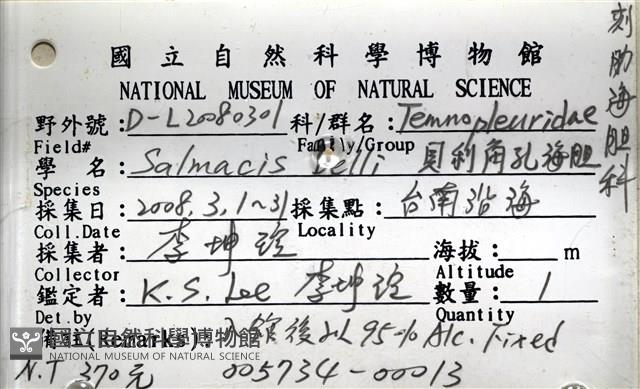 國立自然科學博物館
NATIONAL MUSEUM OF NATURAL SCIENCE
刻肋海胆科
野外號：D-L20080301 科/群名：Temnopleuridae
Field# Family/Group
學 名：Salmacis belli 貝利角孔海胆
Species
採集日：2008.3.1~31 採集點：台南沿海
Coll.Date Locality
採集者：李坤瑄 海拔： m
Collector Altitude
鑑定者：K.S. Lee 李坤瑄 數量：1
Det.by Quantity
(Remarks)：入館後以95% Alc. Fixed
國立自然科學博物館
NATIONAL MUSEUM OF NATURAL SCIENCE
N.T 370元 005734-00013